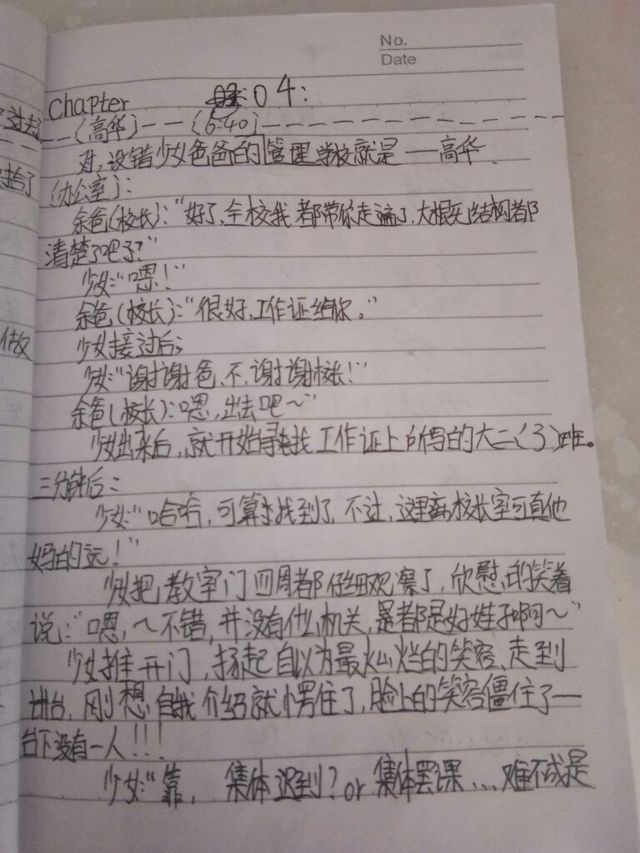 No.
Date
Chapter 04:
(高华)——(6:40)
对,没错少女爸爸的管理学校就是——高华.
(办公室):
余爸(校长):“好了,全校我都带你走遍了,大概结构都
清楚了吧?”
少女:“嗯!”
余爸(校长):“很好,工作证给你。”
少女接过后:
少女:“谢谢爸,不,谢谢校长!”
余爸(校长):嗯,出去吧~”
少女出来后,就开始寻找工作证上所写的大二(3)班。
三分钟后:
少女:“哈哈,可算找到了,不过,这里离校长室可真他
妈的远!”
少女把教室门四周都仔细观察了,欣慰的笑着
说:“嗯,~不错,并没有什么机关,是都是好娃子啊~”
少女推开门,扬起自以为最灿烂的笑容,走到
讲台,刚想自我介绍就愣住了,脸上的笑容僵住了——
台下没有一人!!!
少女:“靠,集体迟到?or集体罢课...难不成是